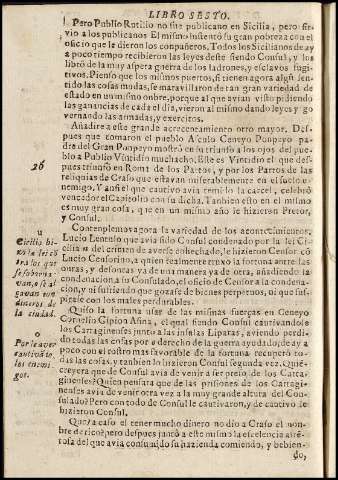 LIBRO SESTO.
Pero Publio Rutilio no fue publicano en Sicilia, pero sir-
vio a los publicanos. El mismo sustentó su gran pobreza con el
oficio que le dieron los compañeros. Todos los Sicilianos de ay
a poco tiempo recibieron las leyes deste siendo Consul, y los
libró de la muy aspera guerra de los ladrones, y esclavos fugi-
tivos. Pienso que los mismos puertos, si tienen agora algun sen-
tido las cosas mudas, se maravillaron de tan gran variedad de
estado en un mismo ombre, porque al que avian visto pidiendo
las ganancias de cada el dia, vieron al mismo dando leyes y go
vernando las armadas, y exercitos.
Añadire a este grande acrecentamiento otro mayor. Des-
pues que tomaron el pueblo Asculo Ceneyo Ponpeyo pa-
dre del Gran Ponpeyo mostró en su triunfo a los ojos del pue-
blo a Publio Vintidio muchacho. Este es Vintidio el que des-
pues triunfó en Roma de los Partos, y por los Partos de las
reliquias de Craso que estavan miserablemente en el suelo e-
nemigo. Y ansi el que cautivo avia temido la carcel, celebró
vencedor el Capitolio con su dicha. Tanbien esto en el mismo
es muy gran cosa, que en un mismo año le hizieron Pretor,
y Consul.
Contemplemos agora la variedad de los acontecimientos.
Lucio Lentulo que avia sido Consul condenado por la lei Ci-
cilia n del crimen de averse cohechado, le hizieron Censor cõ
Lucio Censorino, a quien realmente traxo la fortuna entre las
onras, y defonças ya de una manera ya de otra, añadiendo la
condenacion a su Consulado, el oficio de Censor a la condena-
cion, y ni sufriendo que gozase de bienes perpetuos, ni que sus-
pirase con los males perdurables.
Quiso la fortuna usar de las mismas fuerças en Ceneyo
Cornelio Cipion Asina, el qual siendo Consul cautivandole
los Cartaginenses junto a las insulas Liparas, aviendo perdi-
do todas las cosas por o derecho de la guerra ayudado, de ay a
poco con el rostro mas favorable de la fortuna recuperó to-
das las cosas, y tanbien lo hizieron Consul segunda vez. Quiẽ
creyera que de Consul avia de venir a ser preso de los Carta-
ginenses? Quien pensara que de las prisiones de los Cartagi-
nenses avia de venir otra vez a la muy grande altura del Con-
sulado? Pero con todo de Consul le cautivaron, y de cautivo le
hizieron Consul.
Que? a caso el tener mucho dinero no dio a Craso el nom-
bre de rico? pero despues junto a este mismo la escelencia afrẽ-
tosa del que avia consumido su hazienda comiendo, y bebien-
do,
26
n
Cicilia hi-
zo la lei cõ
tra los que
se soborna
van, o se al
gavan con
dineros de
la ciudad.
o
Por le aver
cautivado,
los enemi
gos.